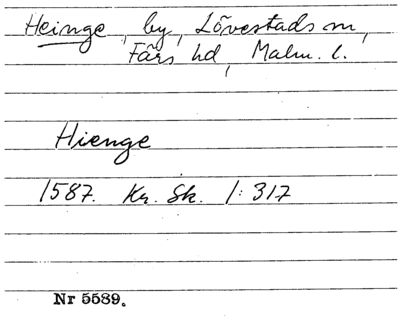 Heinge, by, Lövestads sn,
Färs hd, Malm. l.
Hienge
1587. Kr. Sk. 1:317
Nr 5589.